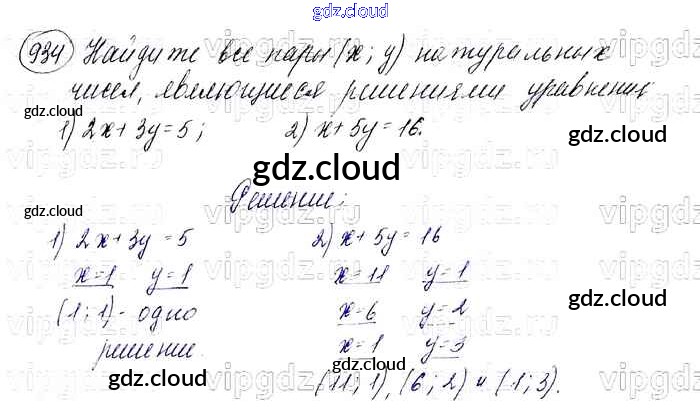 gdz.cloud
934 Найдите все пары (x; y) натуральных
чисел, являющиеся решениями уравнения
gdz.cloud
1) 2x+3y=5; 2) x+5y=16.
gdz.cloud
gdz.cloud
Решение:
gdz.cloud
1) 2x+3y=5 2) x+5y=16
x=1 y=1 x=11 y=1
(1;1)- одно x=6 y=2
gdz.cloud
решение. x=1 y=3
gdz.cloud
gdz.cloud
(11;1), (6;2) и (1;3).
gdz.cloud